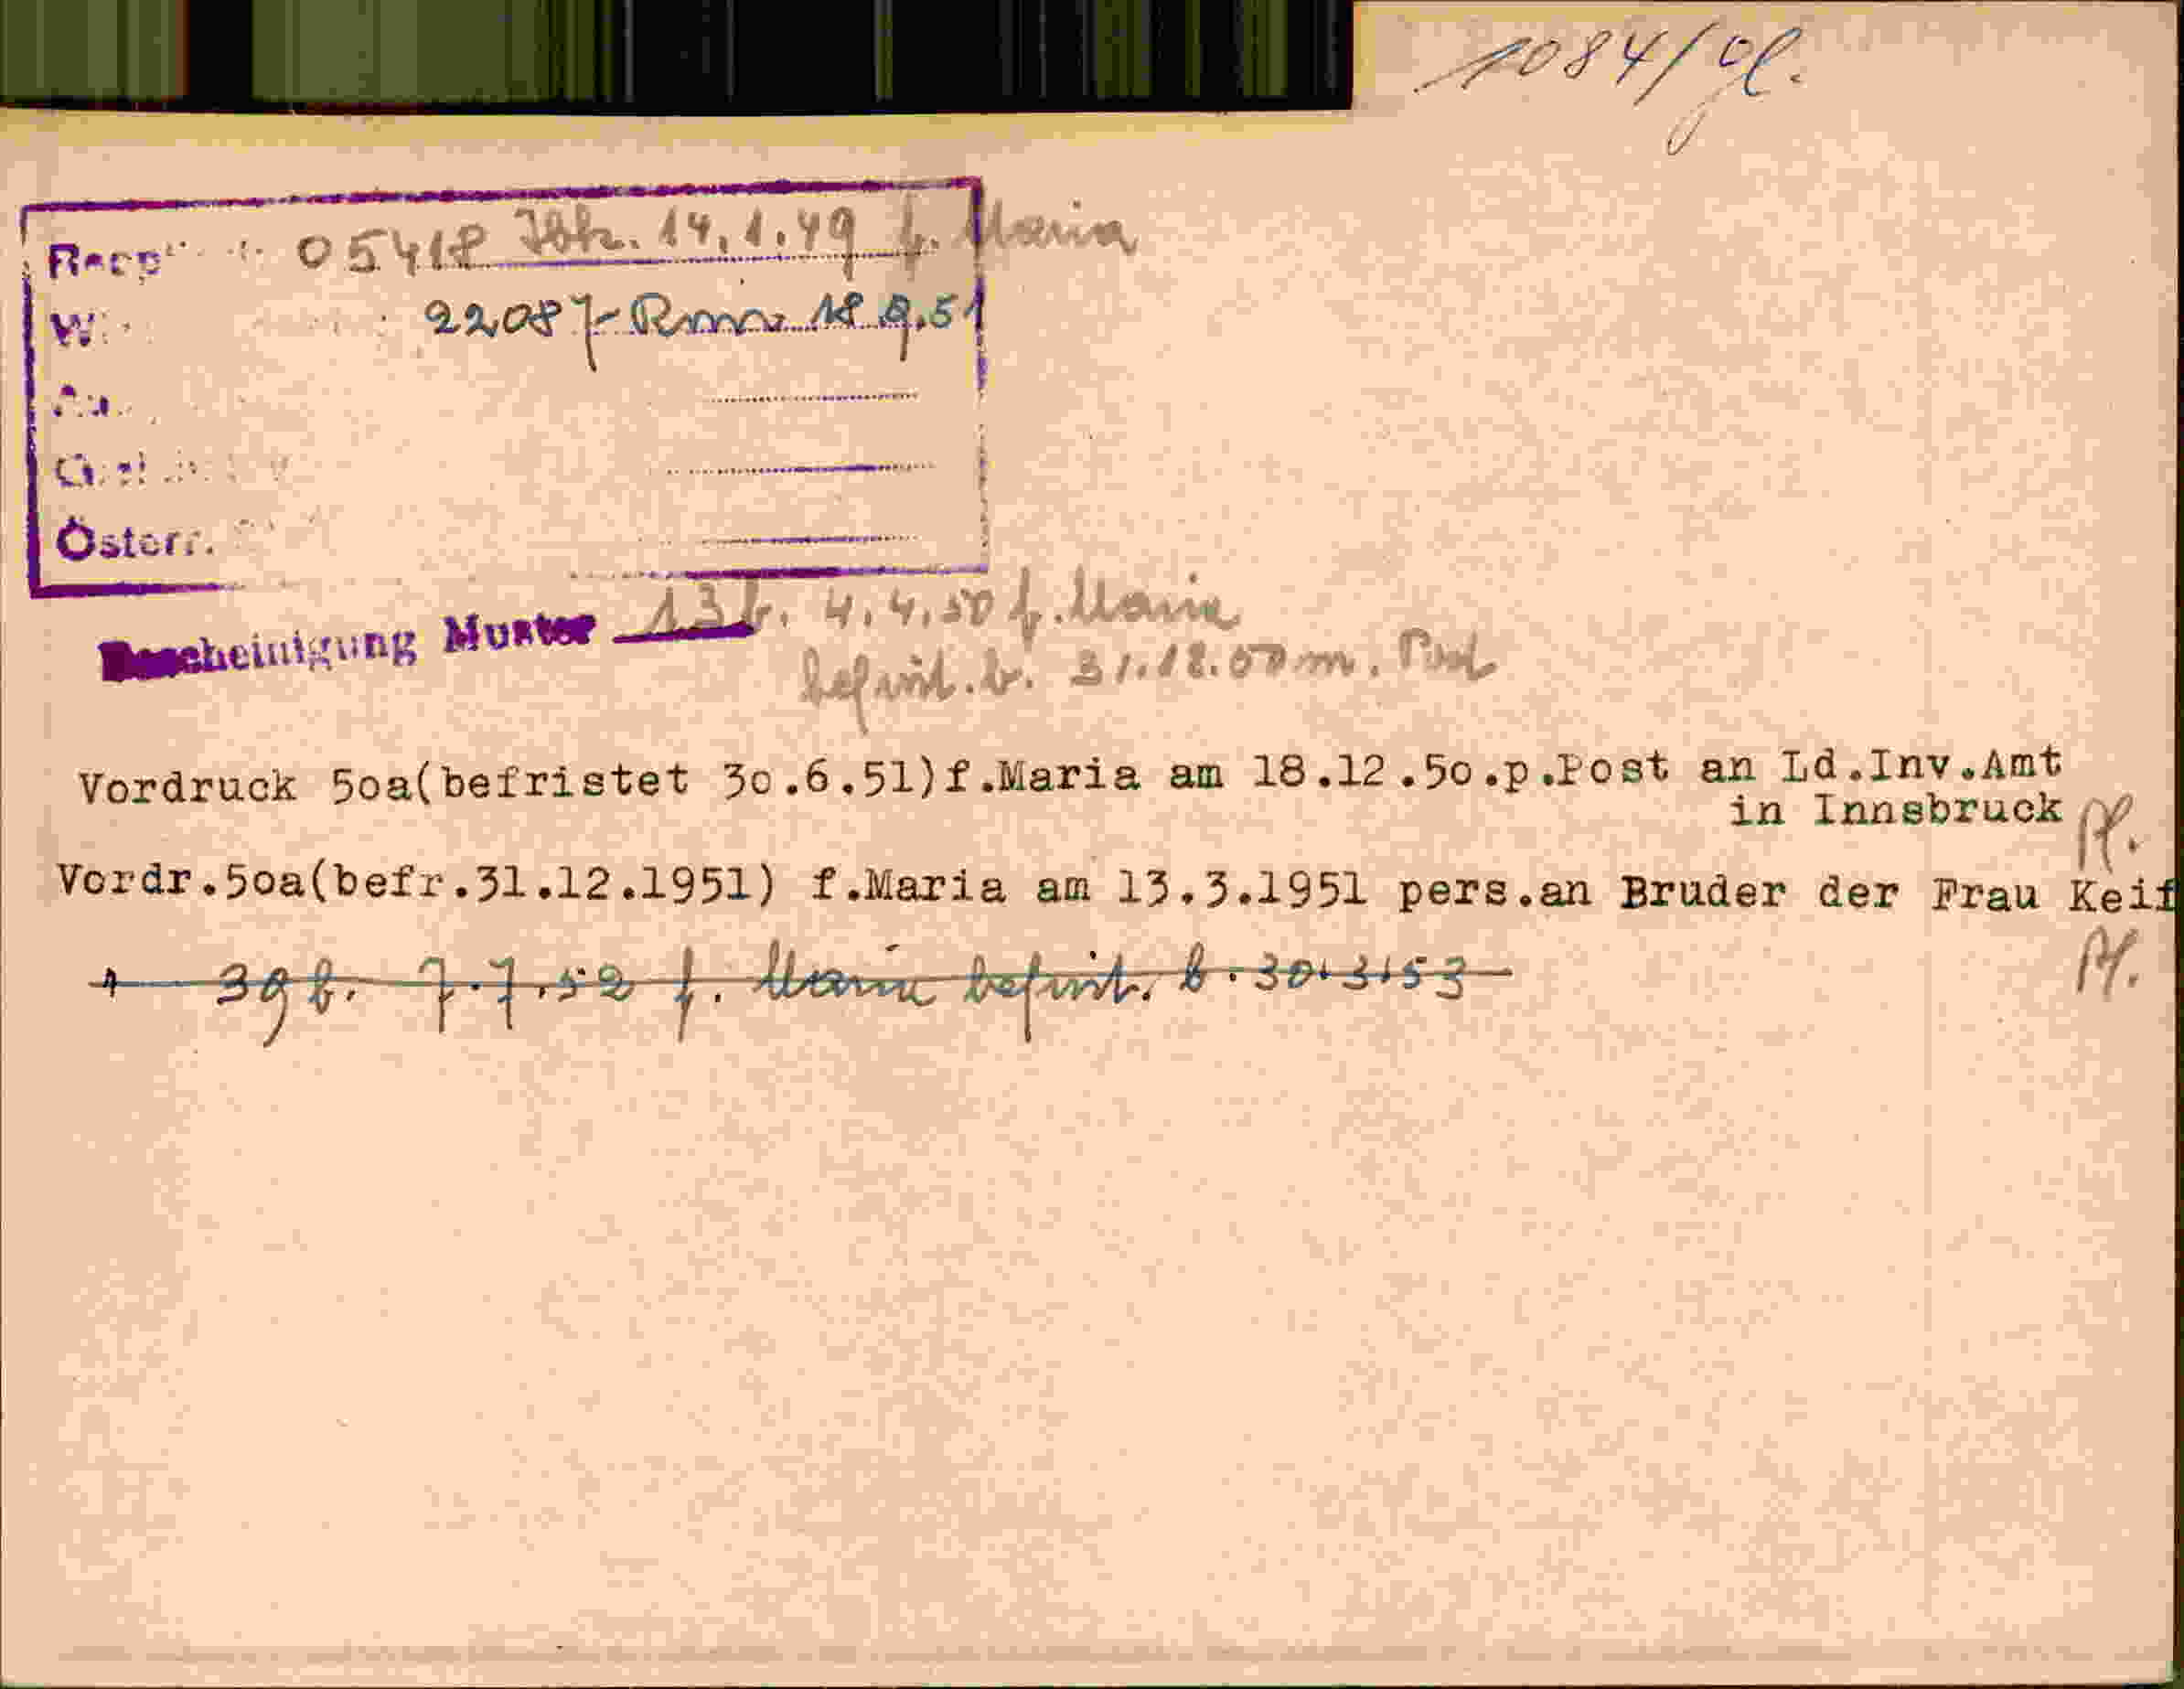 1084/
05418 Ibk. 14.1.49 f. Maria
22087- 18.9.51
Österr.
Bescheinigung Muster 13b. 4.4.50 f. Maria
befrist. b. 31.12.50 m. Post
Vordruck 5oa(befristet 3o.6.51)f.Maria am 18.12.5o.p.Post an Ld.Inv.Amt
in Innsbruck
Vordr.5oa(befr.31.12.1951) f.Maria am 13.3.1951 pers.an Bruder der Frau Keif
39b. 7.7.52 f. Maria befrist. b. 30.3.53